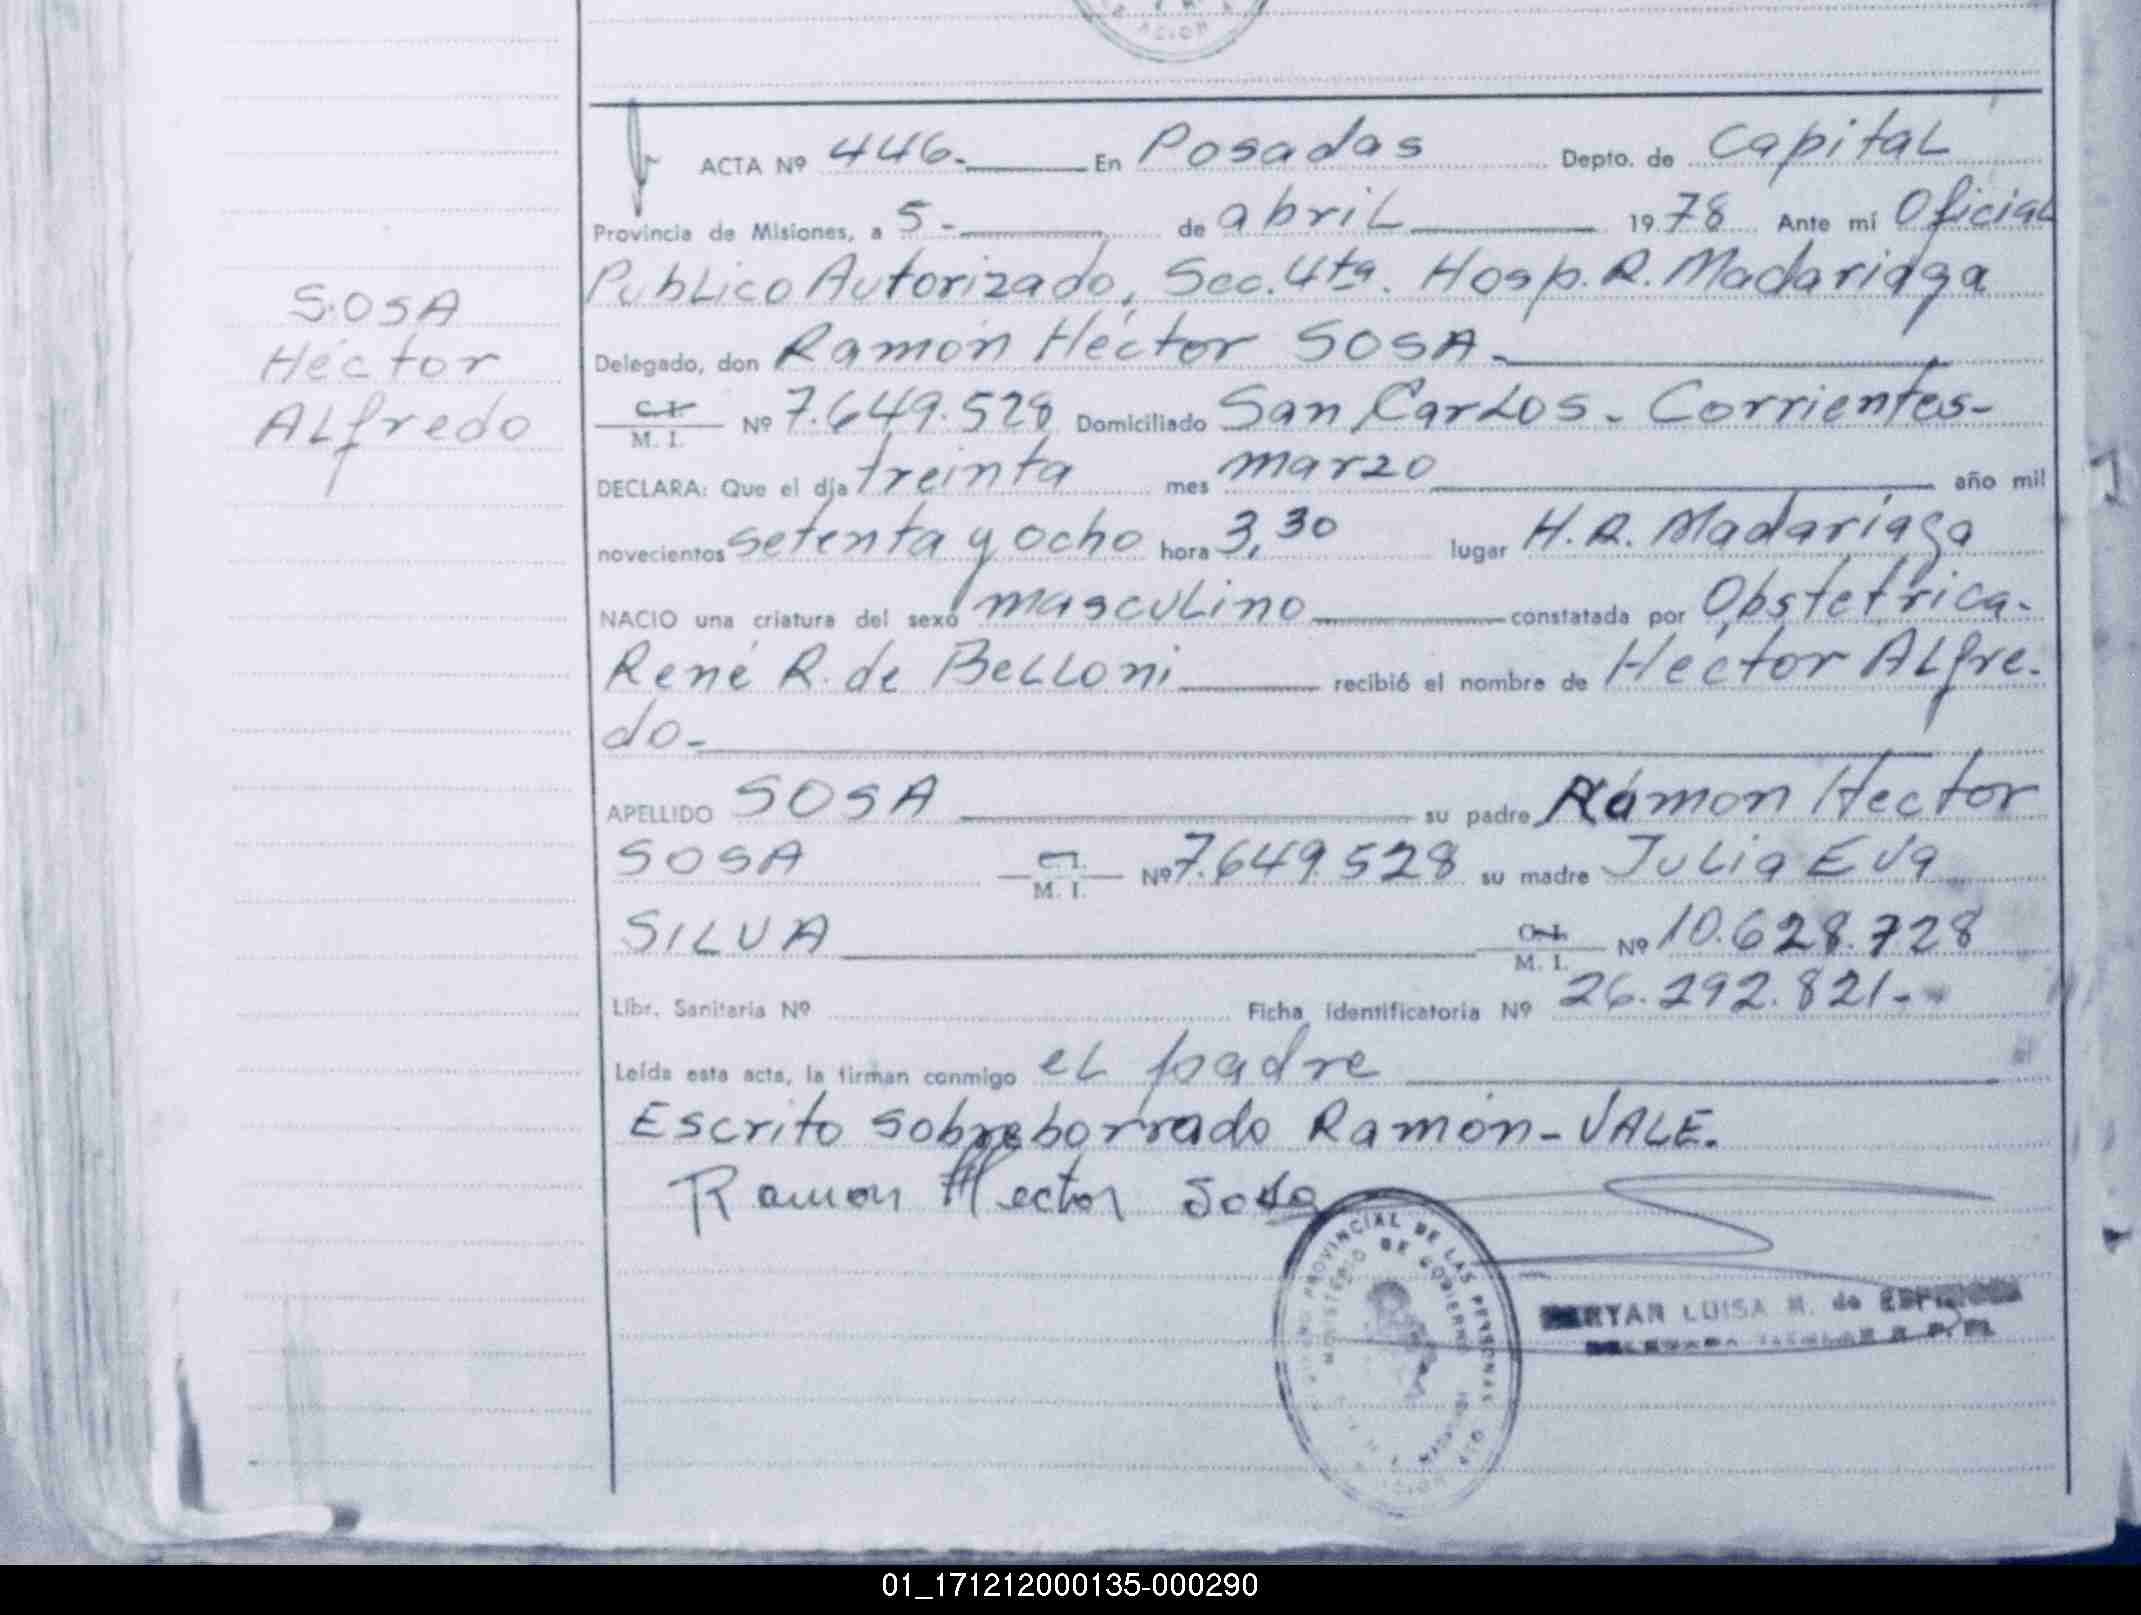 ACTA Nº 446. En Posadas Depto. de Capital
Provincia de Misiones, a 5- de abril 1978 Ante mí Oficial
Publico Autorizado, Sec. 4ta. Hosp. R. Madariaga
SOSA
Héctor
Alfredo
Delegado, don Ramón Héctor SOSA.
C. I. M. I. Nº 7.649.528 Domiciliado San Carlos. Corrientes-
DECLARA: Que el día treinta mes marzo año mil
novecientos setenta y ocho hora 3,30 lugar H. R. Madariaga
NACIO una criatura del sexo masculino constatada por Obstetrica.
René R. de Belloni recibió el nombre de Héctor Alfre-
do-
APELLIDO SOSA su padre Rámon Hector
SOSA C. I. M. I. Nº 7.649.528 su madre Julia Eva
SILVA C. I. M. I. Nº 10.628.728
Libr. Sanitaria Nº Ficha Identificatoria Nº 26.292.821.-
Leída esta acta, la firman conmigo el padre
Escrito sobreborrado Ramón-VALE.
Ramon Hector Sosa
PROVINCIAL DE LAS PERSONAS
MINISTERIO DE GOBIERNO
LUISA M. de
01_171212000135-000290